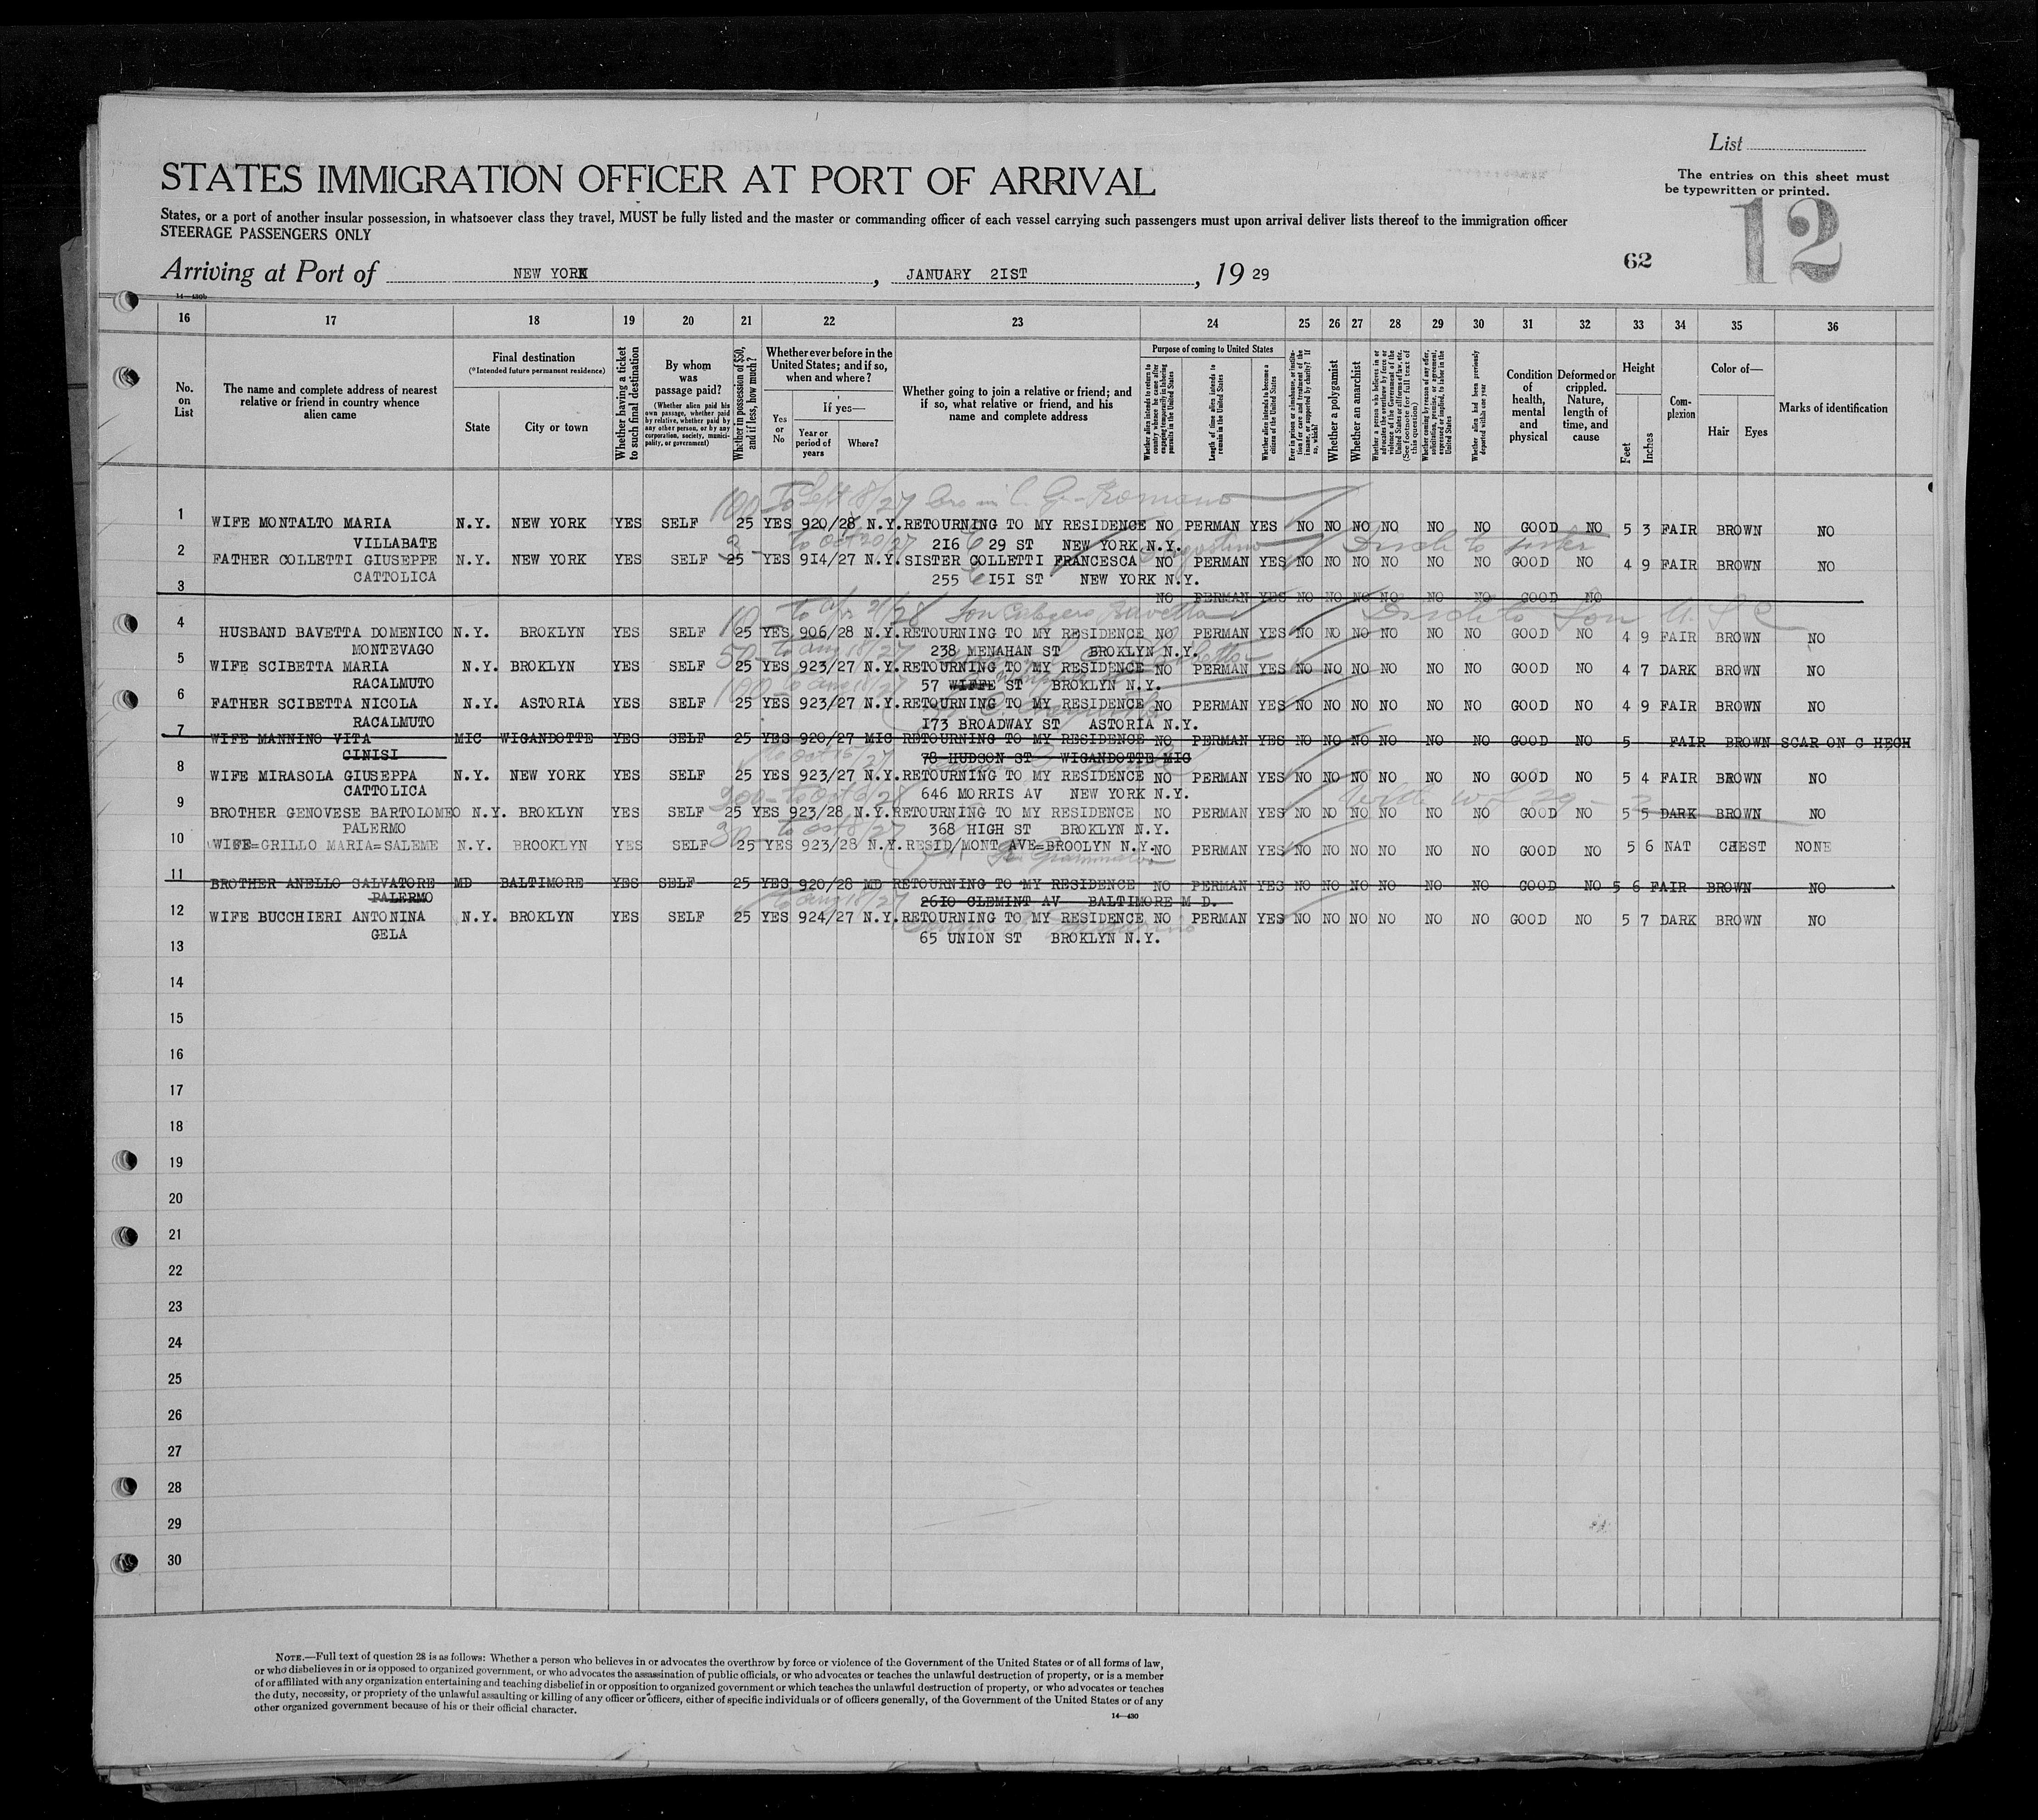 List
The entries on this sheet must
be typewritten or printed.
STATES IMMIGRATION OFFICER AT PORT OF ARRIVAL
States, or a port of another insular possession, in whatsoever class they travel, MUST be fully listed and the master or commanding officer of each vessel carrying such passengers must upon arrival deliver lists thereof to the immigration officer
STEERAGE PASSENGERS ONLY
12
62
Arriving at Port of NEW YORK, JANUARY 2IST, 19 29
14—430b
16 17 18 19 20 21 22 23 24 25 26 27 28 29 30 31 32 33 34 35 36
No. on List
The name and complete address of nearest relative or friend in country whence alien came
Final destination
(*Intended future permanent residence)
State
City or town
Whether having a ticket to such final destination
By whom was passage paid?
(Whether alien paid his own passage, whether paid by relative, whether paid by any other person, or by any corporation, society, municipality, or government)
Whether in possession of $50, and if less, how much?
Whether ever before in the United States; and if so, when and where?
Yes or No
If yes—
Year or period of years
Where?
Whether going to join a relative or friend; and if so, what relative or friend, and his name and complete address
Purpose of coming to United States
Whether alien intends to return to country whence he came after engaging temporarily in laboring pursuits in the United States
Length of time alien intends to remain in the United States
Whether alien intends to become a citizen of the United States
Ever in prison or almshouse, or institution for care and treatment of the insane, or supported by charity? If so, which?
Whether a polygamist
Whether an anarchist
Whether a person who believes in or advocates the overthrow by force or violence of the Government of the United States or all forms of law, etc. (See footnote for full text of this question)
Whether coming by reason of any offer, solicitation, promise, or agreement, expressed or implied, to labor in the United States
Whether alien had been previously deported within one year
Condition of health, mental and physical
Deformed or crippled. Nature, length of time, and cause
Height
Feet
Inches
Complexion
Color of—
Hair
Eyes
Marks of identification
100 to Sept 18/27 Romano
1 WIFE MONTALTO MARIA N.Y. NEW YORK YES SELF 25 YES 920/28 N.Y. RETOURNING TO MY RESIDENCE NO PERMAN YES NO NO NO NO NO NO GOOD NO 5 3 FAIR BROWN NO
VILLABATE 2I6 E 29 ST NEW YORK N.Y.
to Oct 20/27 Agostino
2 FATHER COLLETTI GIUSEPPE N.Y. NEW YORK YES SELF 25 YES 9I4/27 N.Y. SISTER COLLETTI FRANCESCA NO PERMAN YES NO NO NO NO NO NO GOOD NO 4 9 FAIR BROWN NO
CATTOLICA 255 E I5I ST NEW YORK N.Y.
3 NO PERMAN YES NO NO NO NO NO NO GOOD NO
10 to Apr 21/28 Son Calogero Bavetta
4 HUSBAND BAVETTA DOMENICO N.Y. BROKLYN YES SELF 25 YES 906/28 N.Y. RETOURNING TO MY RESIDENCE NO PERMAN YES NO NO NO NO NO NO GOOD NO 4 9 FAIR BROWN NO
MONTEVAGO 238 MENAHAN ST BROKLYN N.Y.
50 to Aug 18/27
5 WIFE SCIBETTA MARIA N.Y. BROKLYN YES SELF 25 YES 923/27 N.Y. RETOURNING TO MY RESIDENCE NO PERMAN YES NO NO NO NO NO NO GOOD NO 4 7 DARK BROWN NO
RACALMUTO 57 WIFFE ST BROKLYN N.Y.
100 to Aug 18/27
6 FATHER SCIBETTA NICOLA N.Y. ASTORIA YES SELF 25 YES 923/27 N.Y. RETOURNING TO MY RESIDENCE NO PERMAN YES NO NO NO NO NO NO GOOD NO 4 9 FAIR BROWN NO
RACALMUTO I73 BROADWAY ST ASTORIA N.Y.
7 WIFE MANNINO VITA MIC WIGANDOTTE YES SELF 25 YES 920/27 MIC RETOURNING TO MY RESIDENCE NO PERMAN YES NO NO NO NO NO NO GOOD NO 5 FAIR BROWN SCAR ON C HEGH
CINISI 78 HUDSON ST WIGANDOTTE MIC
to Oct 15/27
8 WIFE MIRASOLA GIUSEPPA N.Y. NEW YORK YES SELF 25 YES 923/27 N.Y. RETOURNING TO MY RESIDENCE NO PERMAN YES NO NO NO NO NO NO GOOD NO 5 4 FAIR BROWN NO
CATTOLICA 646 MORRIS AV NEW YORK N.Y.
9 BROTHER GENOVESE BARTOLOMEO N.Y. BROKLYN YES SELF 25 YES 923/28 N.Y. RETOURNING TO MY RESIDENCE NO PERMAN YES NO NO NO NO NO NO GOOD NO 5 5 DARK BROWN NO
PALERMO 368 HIGH ST BROKLYN N.Y.
30 to Oct 8/27
10 WIFE=GRILLO MARIA=SALEME N.Y. BROOKLYN YES SELF 25 YES 923/28 N.Y. RESID/MONT AVE=BROOLYN N.Y. NO PERMAN YES NO NO NO NO NO NO GOOD NO 5 6 NAT CHEST NONE
11 BROTHER ANELLO SALVATORE MD BALTIMORE YES SELF 25 YES 920/28 MD RETOURNING TO MY RESIDENCE NO PERMAN YES NO NO NO NO NO NO GOOD NO 5 6 FAIR BROWN NO
PALERMO 26I0 CLEMINT AV BALTIMORE M D.
to Aug 18/27
12 WIFE BUCCHIERI ANTONINA N.Y. BROKLYN YES SELF 25 YES 924/27 N.Y. RETOURNING TO MY RESIDENCE NO PERMAN YES NO NO NO NO NO NO GOOD NO 5 7 DARK BROWN NO
GELA 65 UNION ST BROKLYN N.Y.
13
14
15
16
17
18
19
20
21
22
23
24
25
26
27
28
29
30
NOTE.—Full text of question 28 is as follows: Whether a person who believes in or advocates the overthrow by force or violence of the Government of the United States or of all forms of law,
or who disbelieves in or is opposed to organized government, or who advocates the assassination of public officials, or who advocates or teaches the unlawful destruction of property, or is a member
of or affiliated with any organization entertaining and teaching disbelief in or opposition to organized government or which teaches the unlawful destruction of property, or who advocates or teaches
the duty, necessity, or propriety of the unlawful assaulting or killing of any officer or officers, either of specific individuals or of officers generally, of the Government of the United States or of any
other organized government because of his or their official character.
14—430